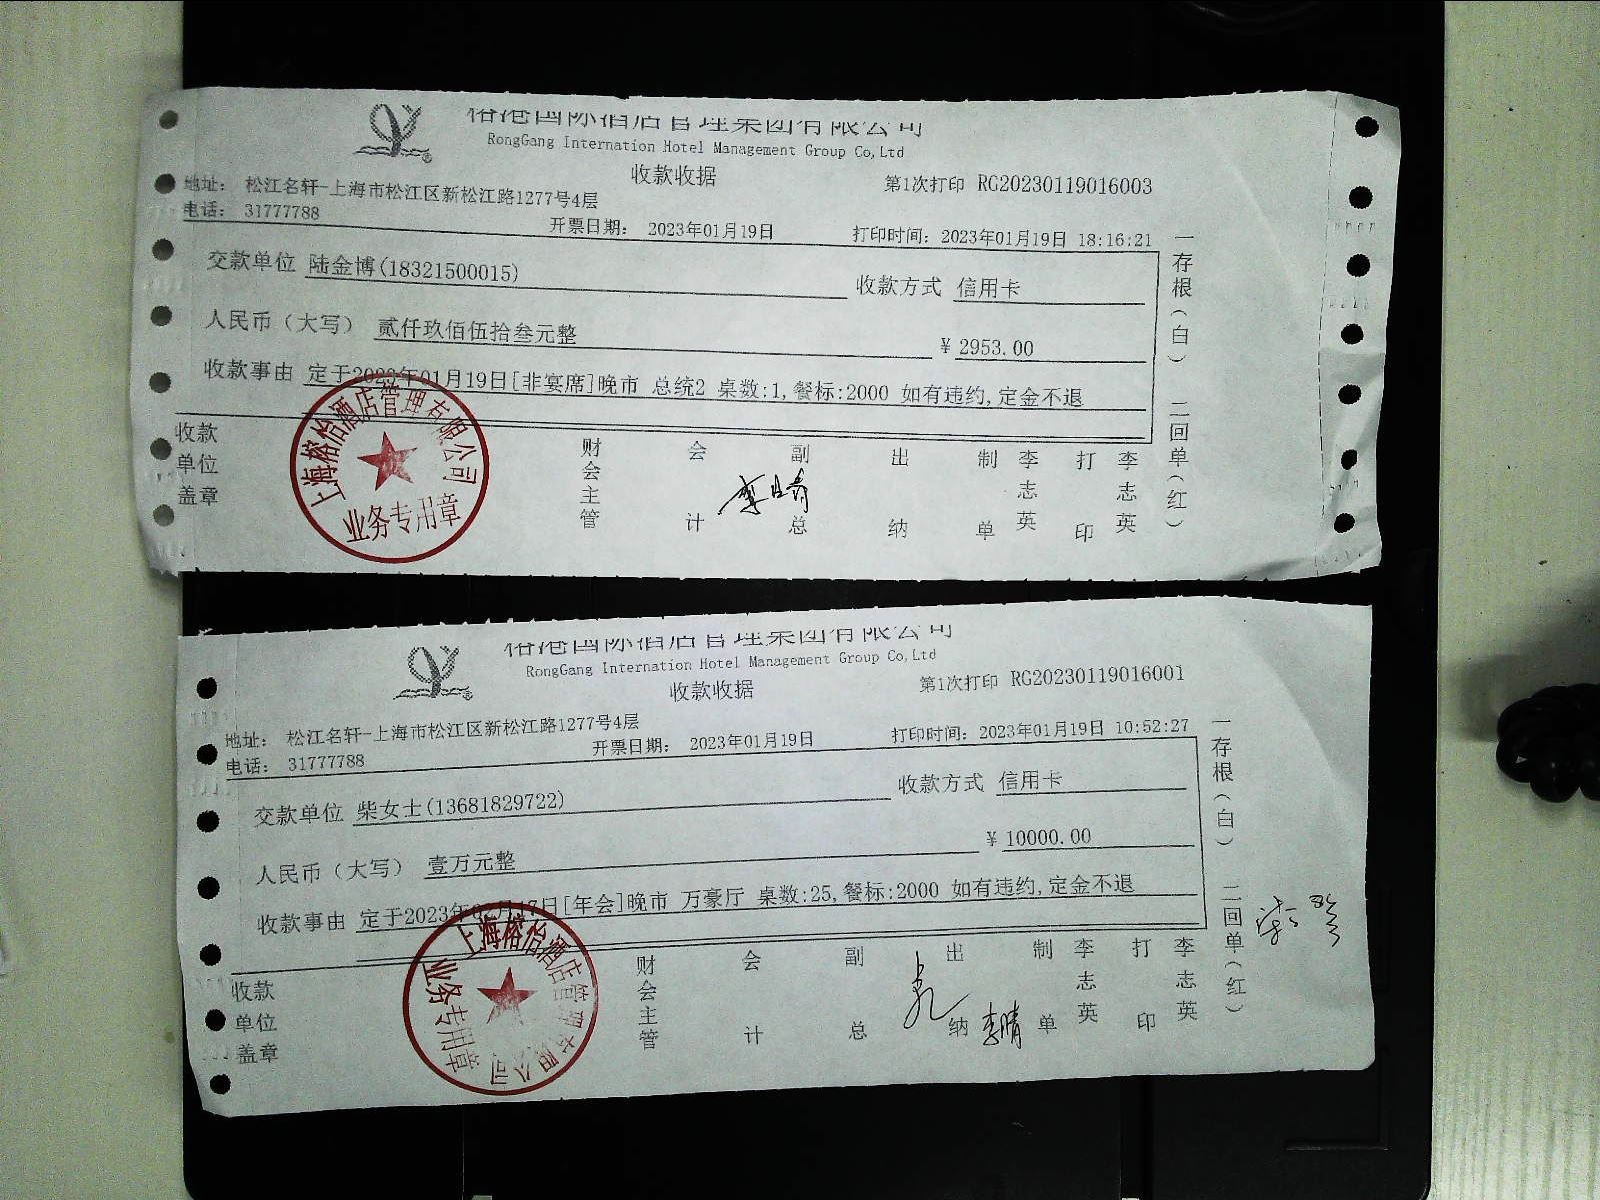 榕港国际酒店管理集团有限公司
RongGang Internation Hotel Management Group Co,Ltd
收款收据
第1次打印 RG20230119016003
地址： 松江名轩-上海市松江区新松江路1277号4层
电话： 31777788
开票日期： 2023年01月19日
打印时间：2023年01月19日 18:16:21
交款单位 陆金博(18321500015)
收款方式 信用卡
人民币（大写） 贰仟玖佰伍拾叁元整
¥ 2953.00
收款事由 定于2023年01月19日[非宴席]晚市 总统2 桌数:1,餐标:2000 如有违约,定金不退
收款单位盖章
财会主管
会计
副总
出纳
制单
李志英
打印
李志英
一存根（白）
二回单（红）
上海榕怡酒店管理有限公司
业务专用章
榕港国际酒店管理集团有限公司
RongGang Internation Hotel Management Group Co,Ltd
收款收据
第1次打印 RG20230119016001
地址： 松江名轩-上海市松江区新松江路1277号4层
电话： 31777788
开票日期： 2023年01月19日
打印时间：2023年01月19日 10:52:27
交款单位 柴女士(13681829722)
收款方式 信用卡
人民币（大写） 壹万元整
¥ 10000.00
收款事由 定于2023年 月17日[年会]晚市 万豪厅 桌数:25,餐标:2000 如有违约,定金不退
收款单位盖章
财会主管
会计
副总
出纳
李晴
制单
李志英
打印
李志英
一存根（白）
二回单（红）
上海榕怡酒店管理有限公司
业务专用章